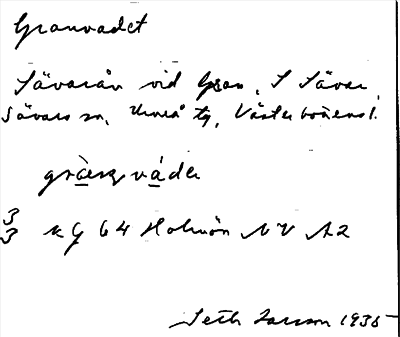 Granvadet
Sävarån vid Gran, S Sävar,
Sävars sn, Umeå tg, Västerbottens l.
gràṇváde
3
3 kg 64 Holmön NV A2
Seth Larsson 1935